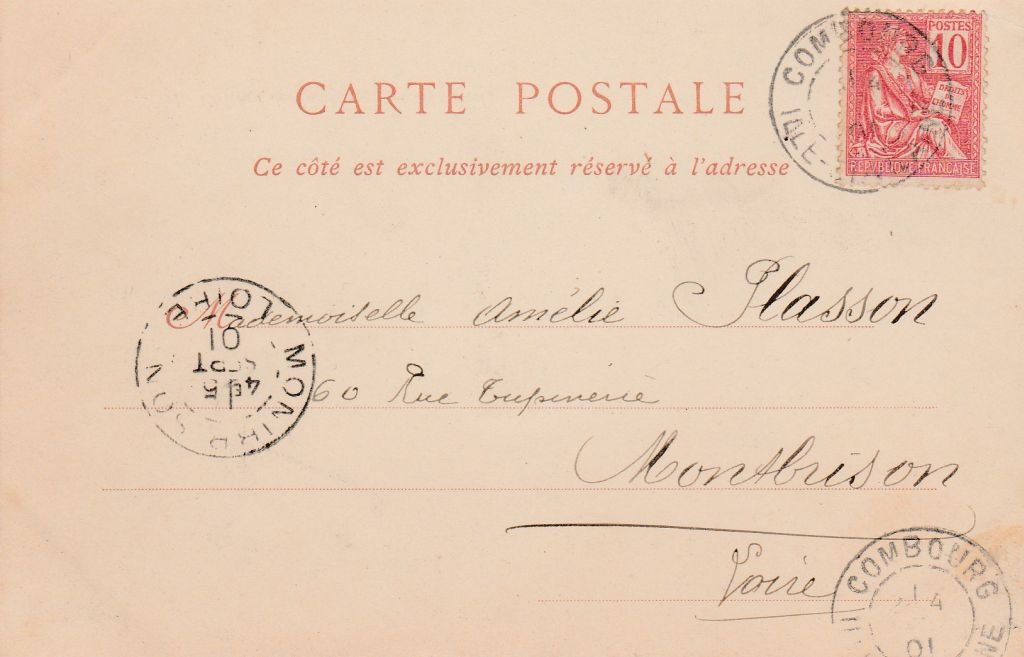 CARTE POSTALE
Ce côté est exclusivement réservé à l'adresse
POSTES
10
DROITS DE L'HOMME
REPVBLIQVE FRANCAISE
COMBOURG
ILLE-
Mademoiselle Amélie Plasson
60 Rue Tupinerie
Montbrison
Loire
LOIRE
01
SEPT
5
4E
COMBOURG
4
01